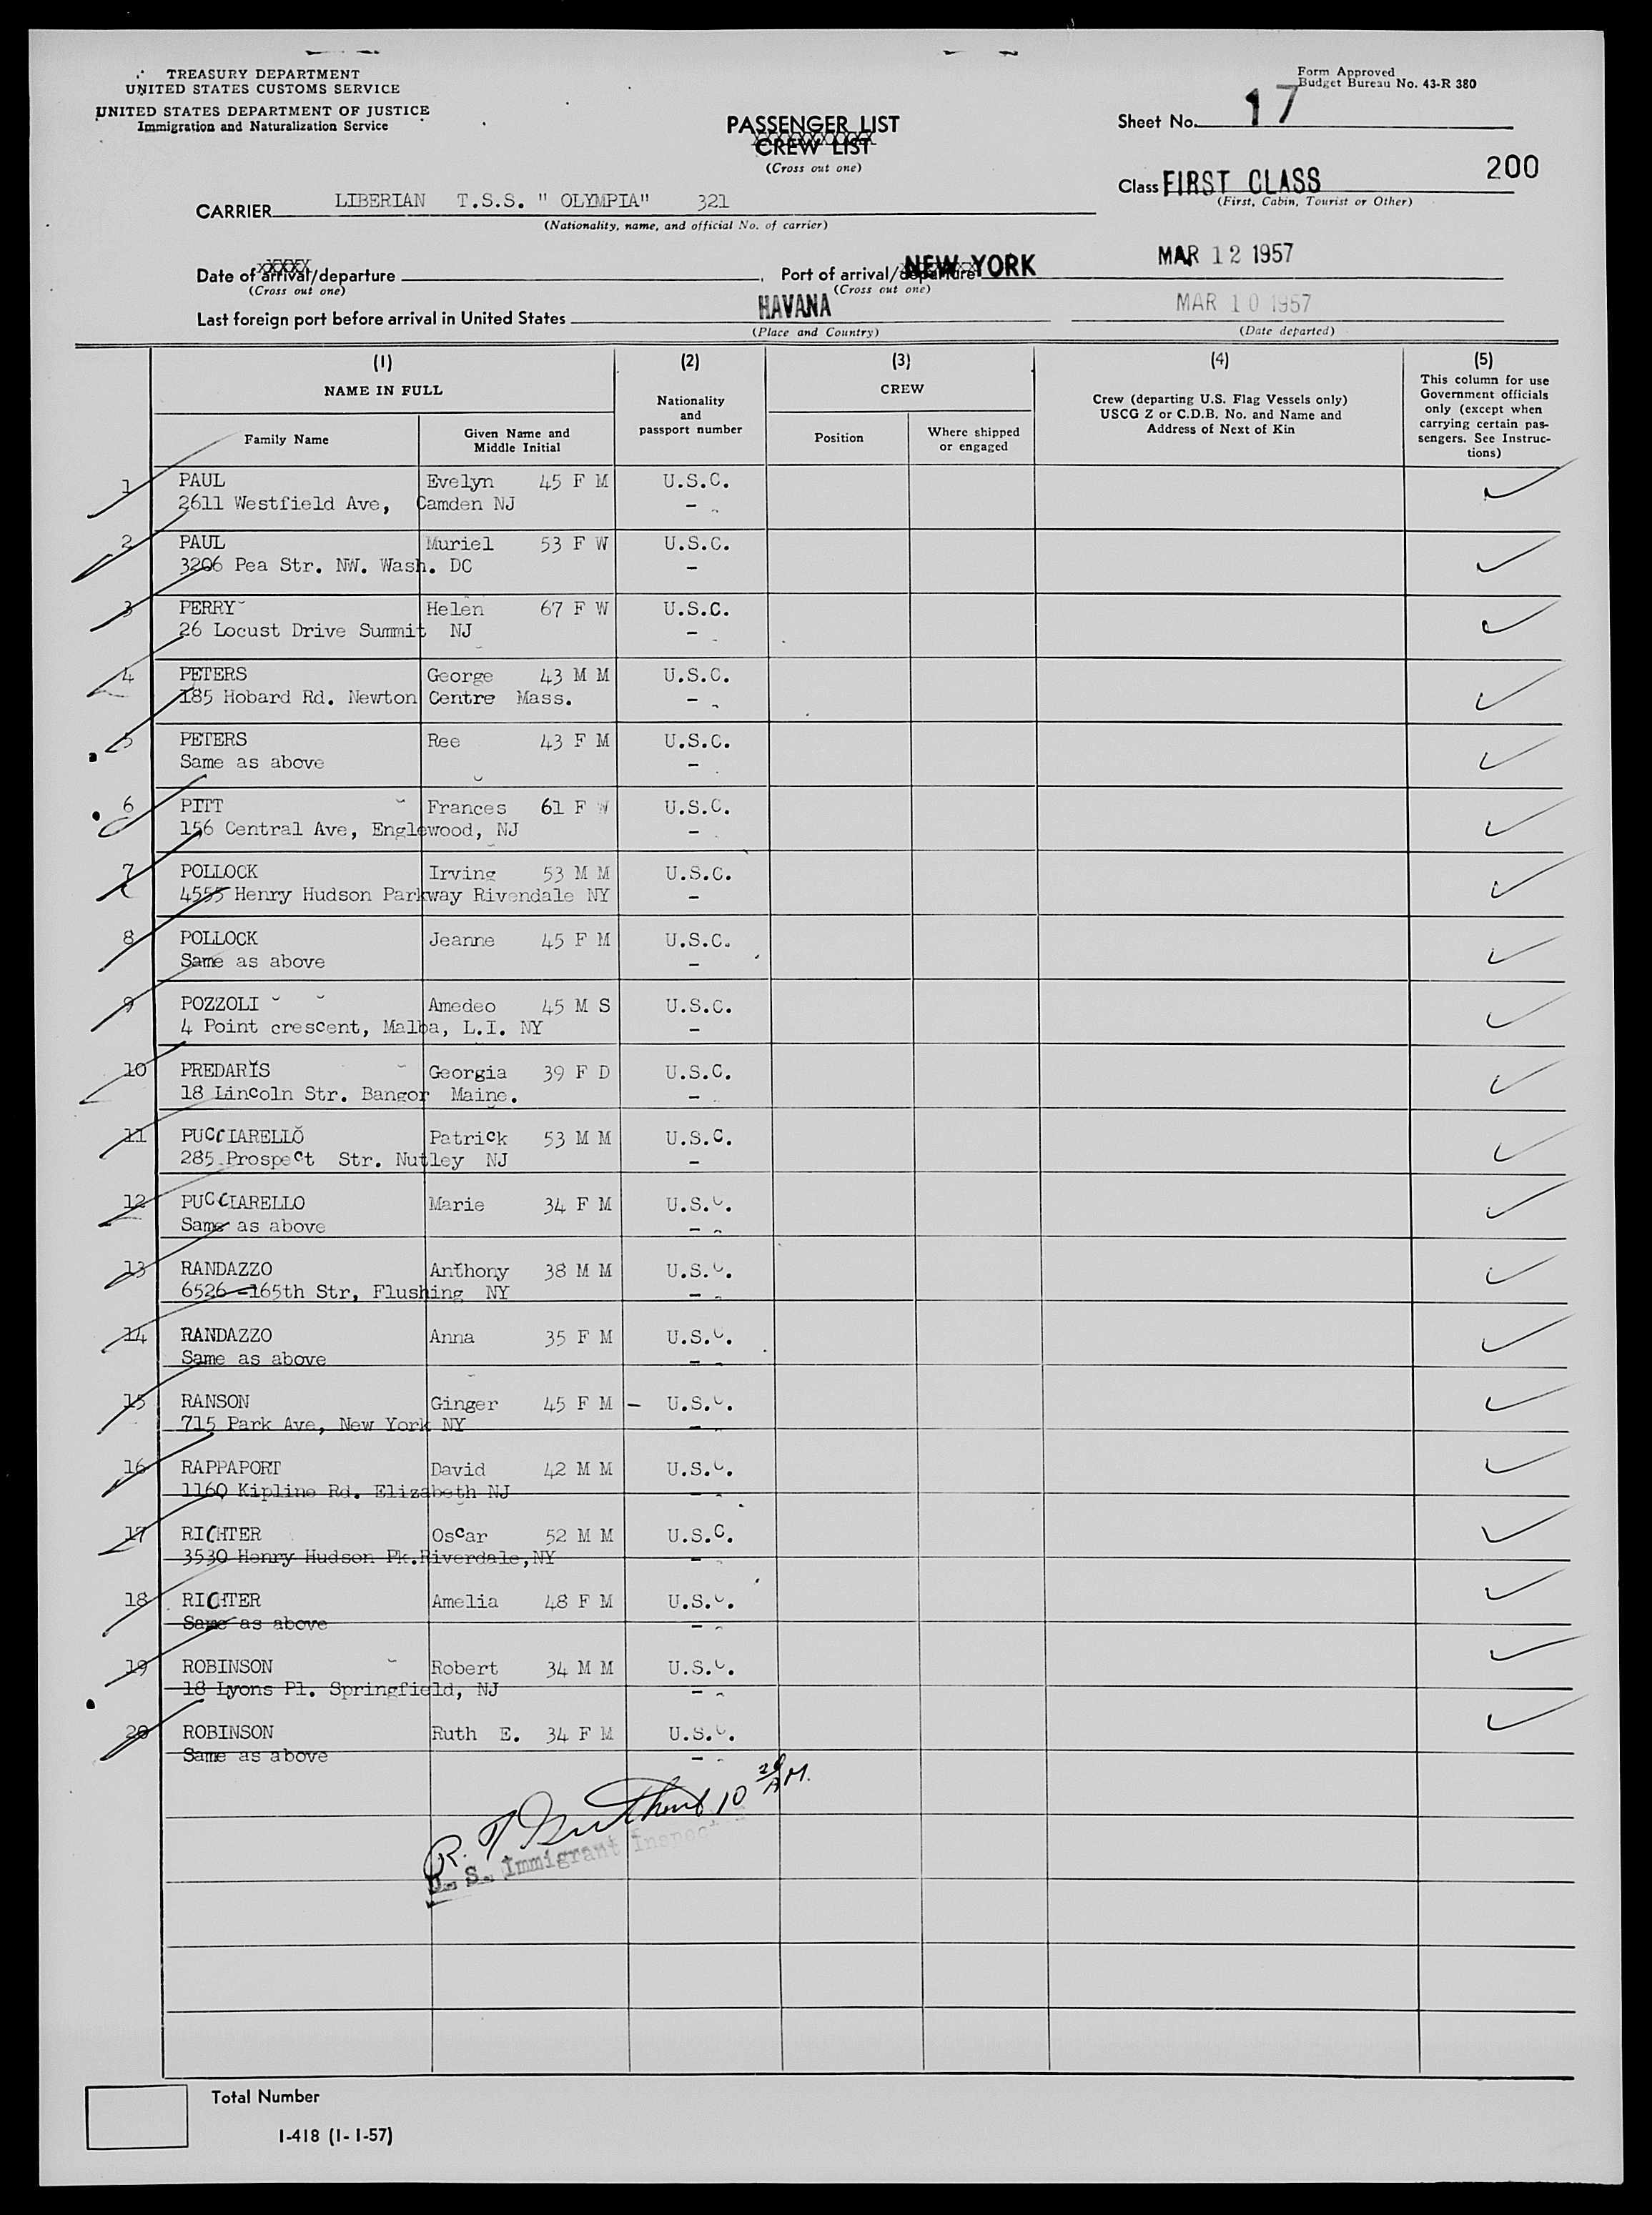 TREASURY DEPARTMENT
UNITED STATES CUSTOMS SERVICE
UNITED STATES DEPARTMENT OF JUSTICE
Immigration and Naturalization Service
Form Approved
Budget Bureau No. 43-R 380
PASSENGER LIST
CREW LIST
(Cross out one)
Sheet No. 17
200
Class FIRST CLASS
(First, Cabin, Tourist or Other)
CARRIER LIBERIAN T.S.S. " OLYMPIA" 321
(Nationality, name, and official No. of carrier)
Date of arrival/departure
(Cross out one)
Port of arrival/departure NEW YORK MAR 12 1957
(Cross out one)
Last foreign port before arrival in United States HAVANA MAR 10 1957
(Place and Country) (Date departed)
(1) (2) (3) (4) (5)
NAME IN FULL
Family Name
Given Name and Middle Initial
Nationality and passport number
CREW
Position
Where shipped or engaged
Crew (departing U.S. Flag Vessels only) USCG Z or C.D.B. No. and Name and Address of Next of Kin
This column for use Government officials only (except when carrying certain passengers. See Instructions)
1 PAUL Evelyn 45 F M U.S.C.
2611 Westfield Ave, Camden NJ -
2 PAUL Muriel 53 F W U.S.C.
3206 Pea Str. NW. Wash. DC -
3 PERRY Helen 67 F W U.S.C.
26 Locust Drive Summit NJ -
4 PETERS George 43 M M U.S.C.
185 Hobard Rd. Newton Centre Mass. -
5 PETERS Ree 43 F M U.S.C.
Same as above -
6 PITT Frances 61 F W U.S.C.
156 Central Ave, Englewood, NJ -
7 POLLOCK Irving 53 M M U.S.C.
4555 Henry Hudson Parkway Rivendale NY -
8 POLLOCK Jeanne 45 F M U.S.C.
Same as above -
9 POZZOLI Amedeo 45 M S U.S.C.
4 Point crescent, Malba, L.I. NY -
10 PREDARIS Georgia 39 F D U.S.C.
18 Lincoln Str. Bangor Maine. -
11 PUCCIARELLO Patrick 53 M M U.S.C.
285 Prospect Str. Nutley NJ -
12 PUCCIARELLO Marie 34 F M U.S.C.
Same as above -
13 RANDAZZO Anthony 38 M M U.S.C.
6526 -165th Str, Flushing NY -
14 RANDAZZO Anna 35 F M U.S.C.
Same as above -
15 RANSON Ginger 45 F M - U.S.C.
715 Park Ave, New York NY -
16 RAPPAPORT David 42 M M U.S.C.
1160 Kipline Rd. Elizabeth NJ -
17 RICHTER Oscar 52 M M U.S.C.
3530 Henry Hudson Pk.Riverdale,NY -
18 RICHTER Amelia 48 F M U.S.C.
Same as above -
19 ROBINSON Robert 34 M M U.S.C.
18 Lyons Pl. Springfield, NJ -
20 ROBINSON Ruth E. 34 F M U.S.C.
Same as above -
R. 10 20 AM.
U. S. Immigrant Inspector
Total Number
I-418 (1-1-57)